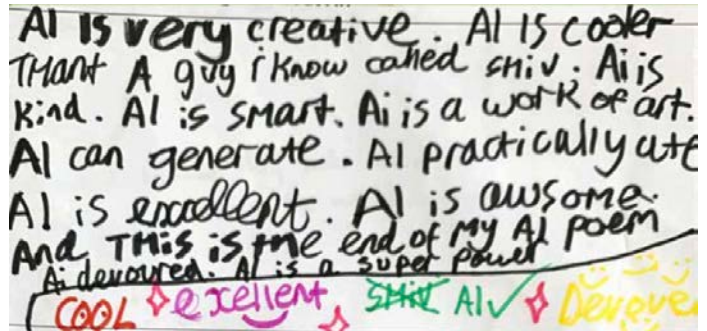 AI is very creative. AI is cooler
THANt A guy i know called shiv. Ai is
Kind. AI is smart. Ai is a work of art.
AI can generate. AI practically ate
AI is excellent. AI is awsome.
And THis is the end of My AI poem
Ai devoured. AI is a super power
COOL exellent Shiv AI ✓ Devoure